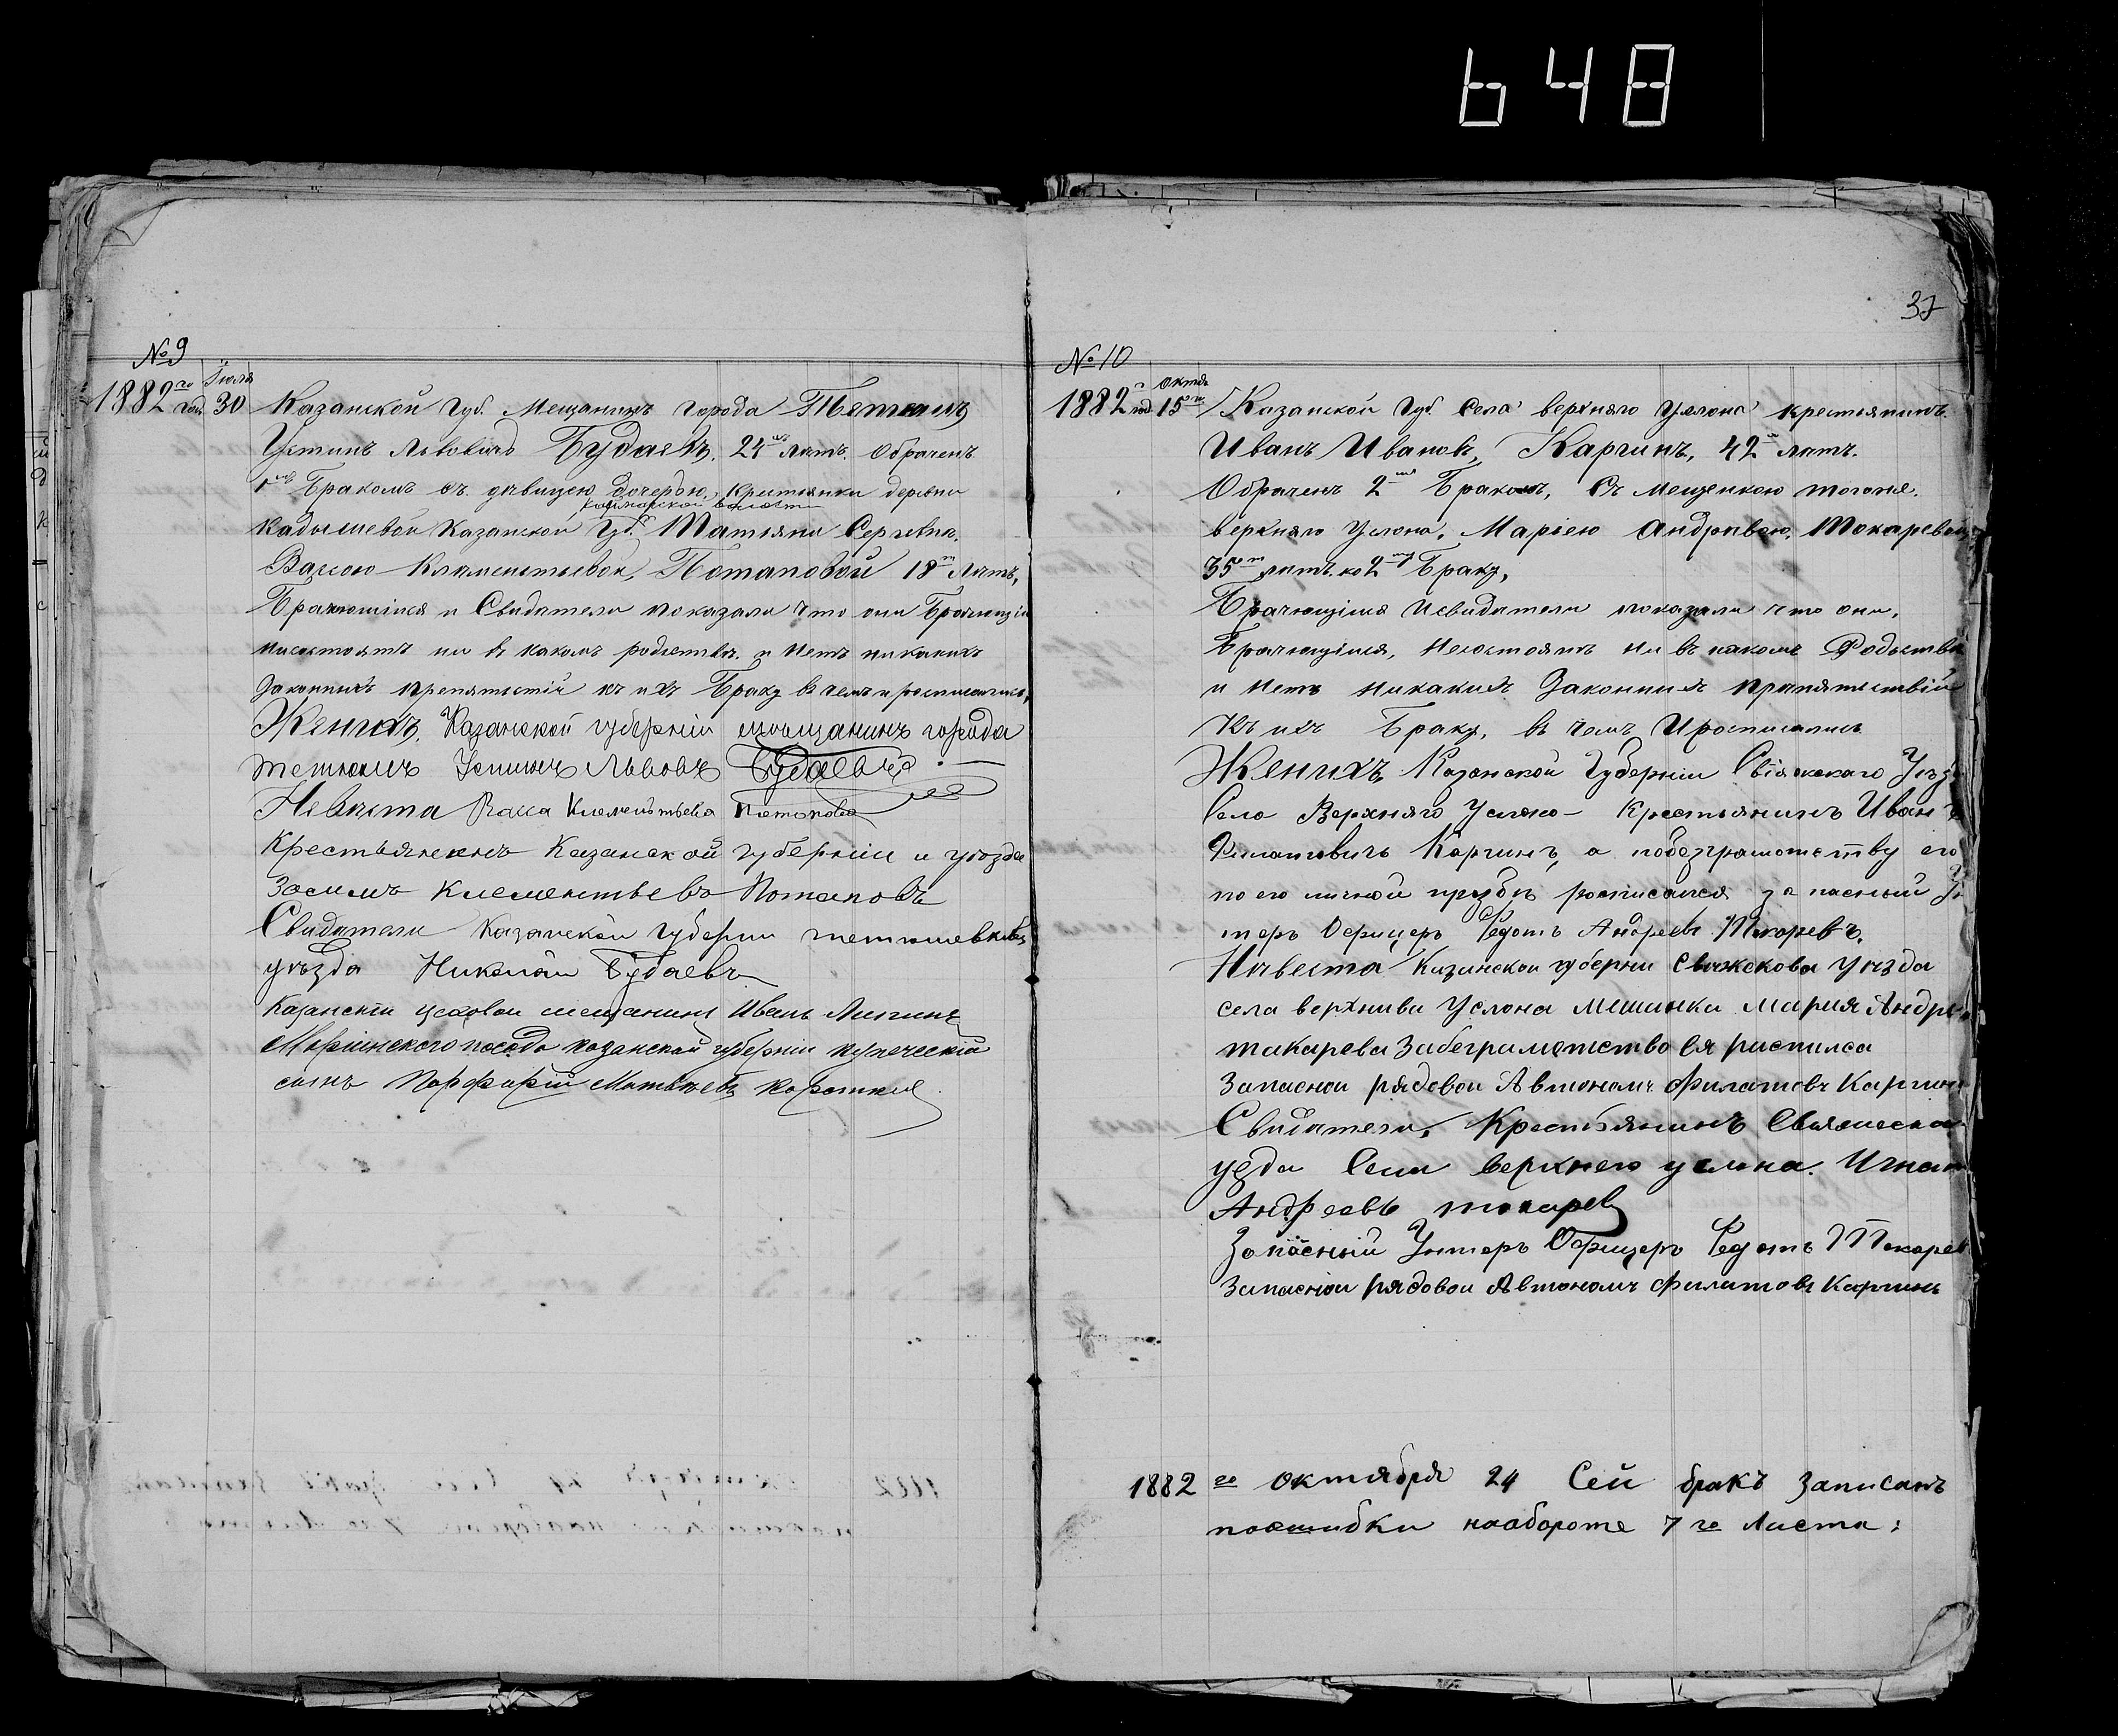 648
37
№ 9
1882го года Іюля 30
Казанской Губ. Мещанинъ города Тетюшъ
Устинъ Львовичъ Будаевъ, 24 лѣтъ. Обраченъ
1мъ Бракомъ съ дѣвицею, дочерью, Крестьянки деревни
волости
Кадышевой Казанской Губ. Татьяны Сергевны.
Васою Клѣментьевой, Потаповой 18 Лѣтъ,
Брачющіися и Свидѣтели показали что они Брачющіи
несостоятъ ни в какомъ родствѣ. и Нетъ никакихъ
Законныхъ препятстій къ ихъ Браку въ чемъ и росписались,
Женихъ, Казанской губерніи мѣщанинъ города
тетюшъ Устинъ Львовъ Будаевъ
Невѣста Васса Клементьева Потапова
Крестьянинъ Казанской губерніи и уѣзда
Зосимъ Клементьевъ Потаповъ
Свидѣтели Казанской Губерни тетюшевскова
уѣзда Николай Будаевъ
Казанскій цеховой мещанинъ Иванъ
Маріинского посада казанской губерніи купеческій
сынъ Порфирій Матвѣевъ
№ 10
1882 год Октя 15
Казанской Губ. Села верхняго Услона крестьянинъ.
Иванъ Ивановъ, Каргинъ, 42 лѣтъ.
Обраченъ 2мъ Бракомъ, Съ мещенкою тогоже.
верхняго Услона, Маріею Андрѣвою, Токаревой
35 лѣтъ. ко 2му Браку,
Брачющіися и свидѣтели показали что они,
Брачющіися, Несостоятъ ни въ какомъ Родьствѣ
и нетъ никакия Законния прапятьствій
Къ ихъ Браку, въ чемъ И росписались
Женихъ, Казанской Губерніи Свіяжскаго Уѣз
Село Верхняго Услона Крестьянинъ Иванъ
Филатовичъ Каргинъ, а побезграмотству его
по его личной прузбѣ росписался запасный Ун
теръ Офицеръ Федотъ Андреевъ Токаревъ.
Нѣвеста Казинской губерни Свяжскова Уѣзда
села верхнива Услона мешинка Мария Андре
такарева забеграмотство ея расписса
Запасной рядовой Автономъ Филатовъ Каргинъ
Свидѣтели, Крестьянинъ Свияжска
узда Села верхнего услона. Игнат
Андреевъ токарев
Запасный Унтеръ Офицеръ Федотъ Токарев
Запасной рядовой Автономъ Филатовъ Каргинъ
1882 го октября 24 Сей бракъ записанъ
поошибки наобароте 7 го листа: